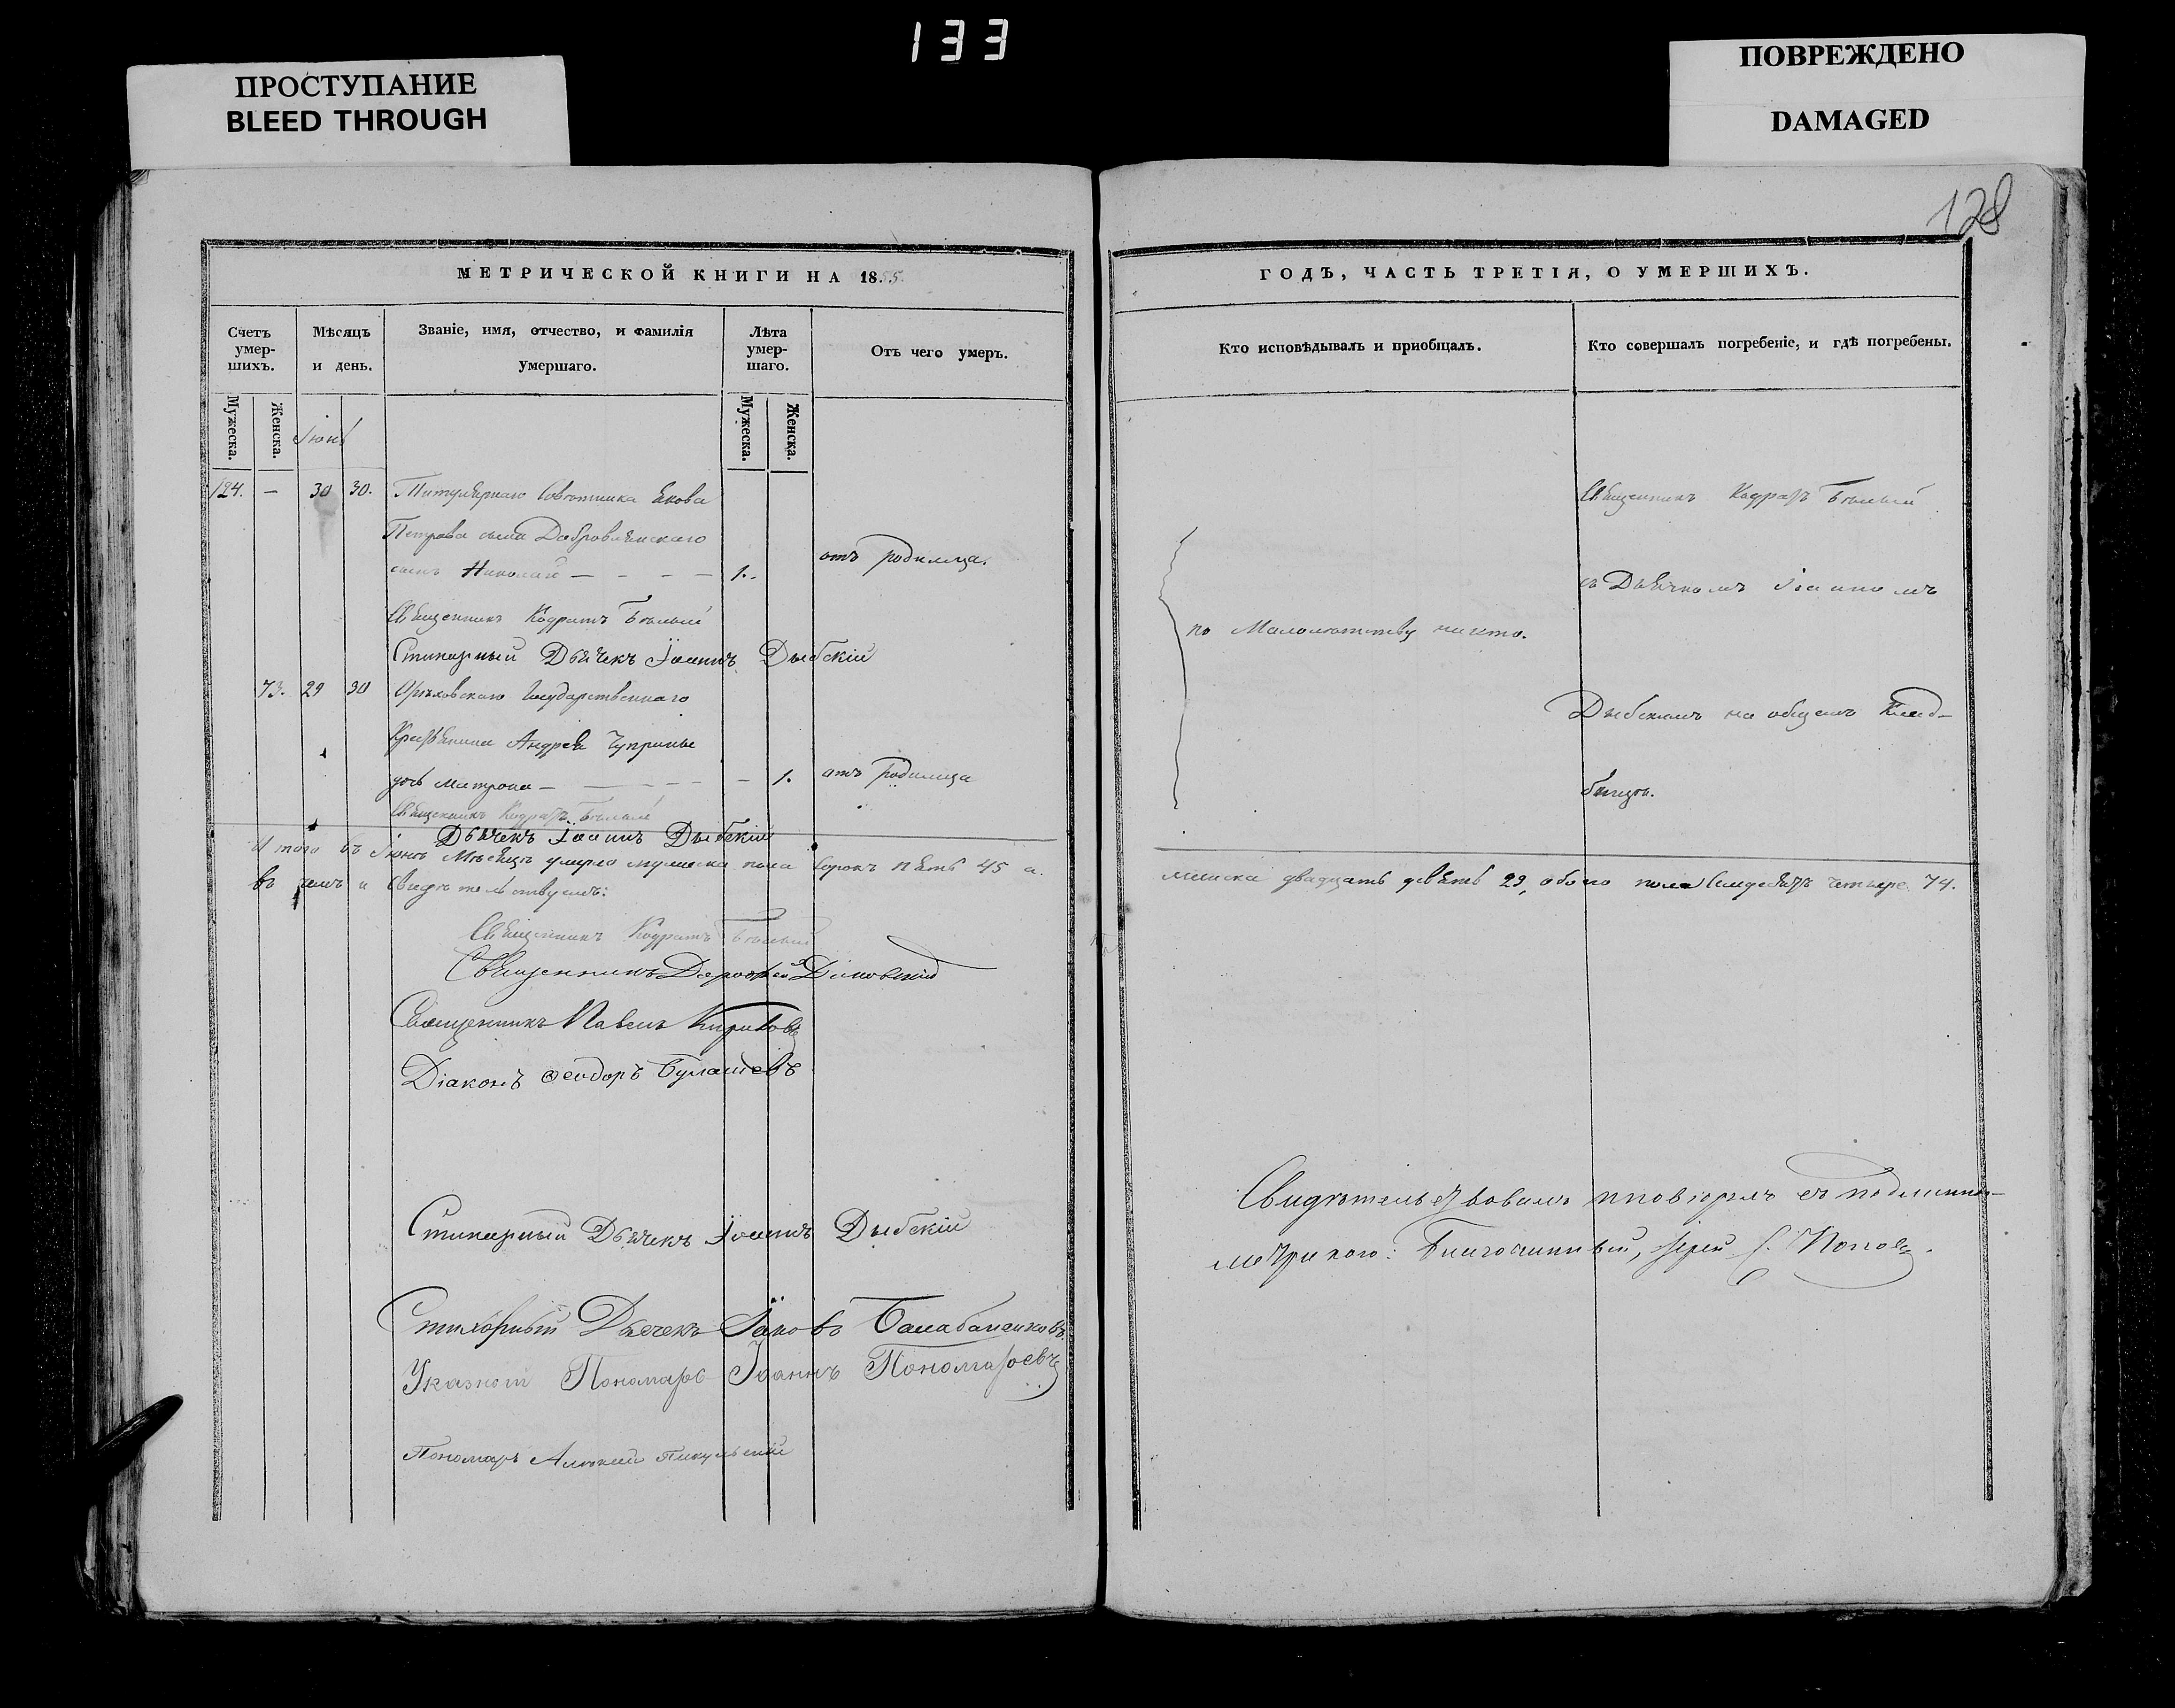 133
ПРОСТУПАНИЕ
BLEED THROUGH
ПОВРЕЖДЕНО
DAMAGED
128
МЕТРИЧЕСКОЙ КНИГИ НА 1855.
Счетъ умер-шихъ.
Мужеска.
Женска.
Мѣсяцъ и день.
Званіе, имя, отчество, и фамилія умершаго.
Лѣта умер-шаго.
Мужеска.
Женска.
Отъ чего умеръ.
Іюнь
124. — 30 30. Титулярнаго Совѣтника Якова
Петрова сына Добровлянскаго
сынъ Николай — — — — 1. отъ родимца.
Священникъ Кодратъ Бѣлый
Стихарный Дьячекъ Іоаннъ Дыбскій
73. 29 30 Орѣховскаго Государственнаго
Крестьянина Андрея Чуприны
дочь Матрона — — — — — 1. отъ родимца
Священникъ Кодратъ Бѣлый
Дьячекъ Іоаннъ Дыбскій
Итого въ Іюнѣ Мѣсяцѣ умерло мужеска пола сорокъ пять 45 а.
въ чемъ и свидѣтельствуемъ:
Священникъ Кодратъ Бѣлый
Священникъ Дорофей
Священникъ Павелъ Кириловъ
Діаконъ Феодоръ Булашевъ
Стихарный Дьячекъ Іоаннъ Дыбскій
Стихарный Дьячекъ Іаковъ Балабаненковъ
Указной Пономарь Іоаннъ Пономаревъ
Пономарь Алексій Пикульскій
ГОДЪ, ЧАСТЬ ТРЕТІЯ, О УМЕРШИХЪ.
Кто исповѣдывалъ и пріобщалъ.
Кто совершалъ погребеніе, и гдѣ погребены.
Священникъ Кодратъ Бѣлый
съ Дьячкомъ Іоанномъ
по Малолѣтству никто.
Дыбскимъ на общемъ Клад-
бищѣ.
женска двадцать девять 29, обоего пола семдесятъ четыре 74.
Свидѣтельствовалъ и повѣрялъ съ подлинною
метрикою: Благочинный, Іерей С. Поповъ.